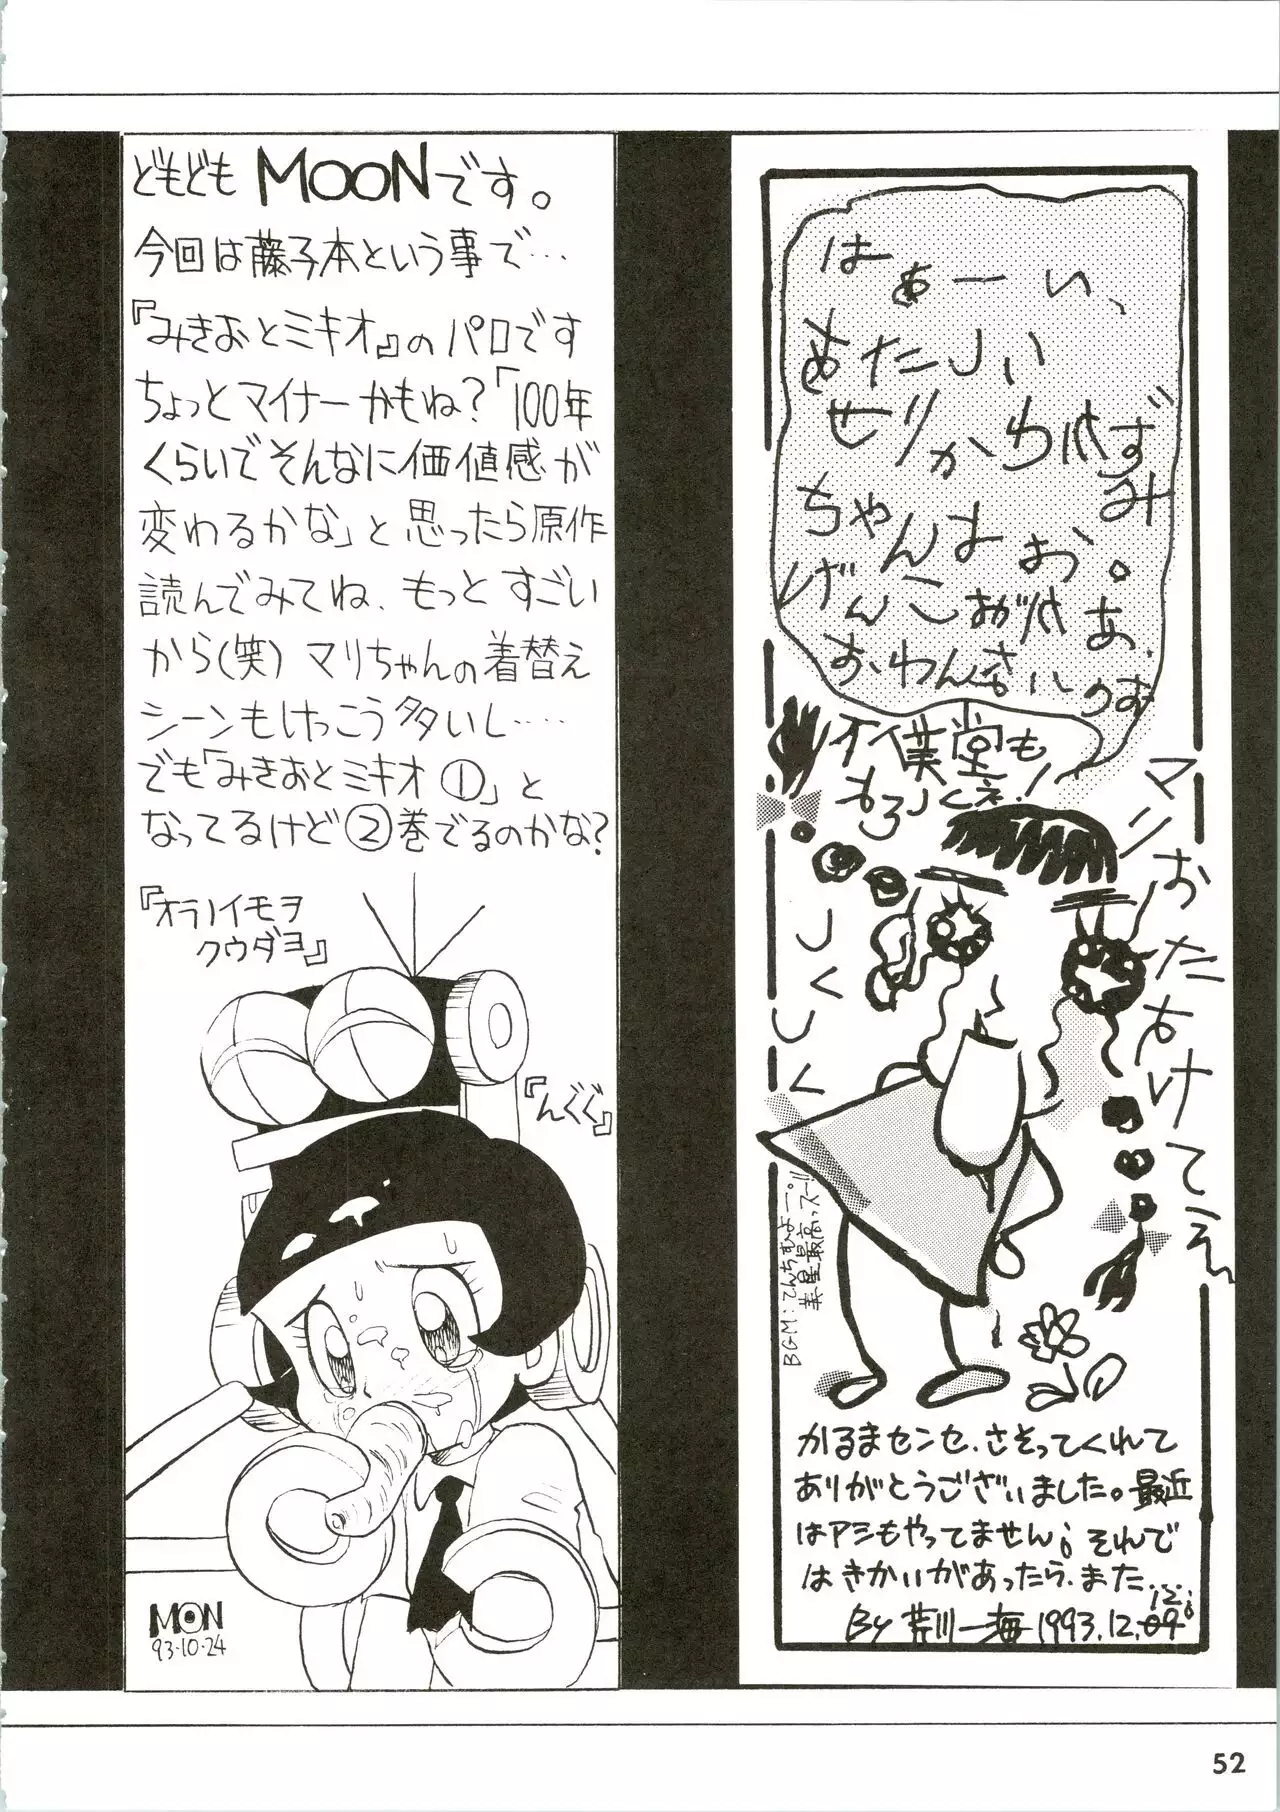 どもども MOONです。
今回は藤子本という事で…
『みきおとミキオ』のパロです
ちょっとマイナーかもね?「100年
くらいでそんなに価値感が
変わるかな」と思ったら原作
読んでみてね、もっとすごい
から(笑)マリちゃんの着替え
シーンもけっこう多いし‥‥
でも「みきおとミキオ①」と
なってるけど②巻でるのかな?
『オラノイモヲ
クウダヨ』
『んぐぐ』
MOON
93・10・24
はぁーい、
あたしい
せりかわかずみ
ちゃんよお。
げんこおがあ、
マリおたすけてえ
しくしく
BGM:てんちむよー。!!
美星最高っスー!!
かるまセンセ、さそってくれて
ありがとうございました。最近
はアシもやってません。それで
はきかいがあったら、また。
By 芹川一海 1993.12.
52